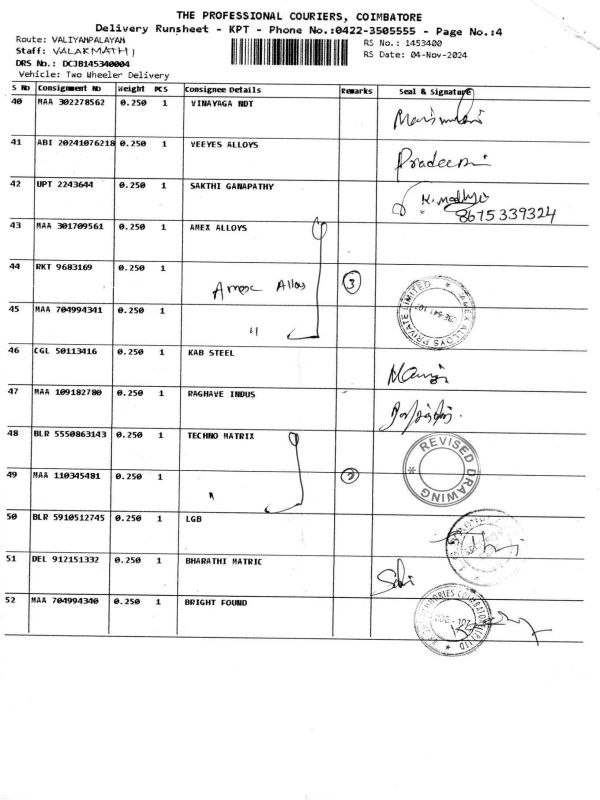 THE PROFESSIONAL COURIERS, COIMBATORE
Delivery Runsheet - KPT - Phone No.:0422-3505555 - Page No.:4
Route: VALIYAMPALAYAM
RS No.: 1453400
Staff: VALARMATHI
RS Date: 04-Nov-2024
DRS No.: DCJB145340004
Vehicle: Two Wheeler Delivery
S No Consignment No Weight PCS Consignee Details Remarks Seal & Signature
40 MAA 302278562 0.250 1 VINAYAGA NDT
41 ABI 20241076218 0.250 1 VEEYES ALLOYS Pradeep
42 UPT 2243644 0.250 1 SAKTHI GANAPATHY 8675339324
43 MAA 301709561 0.250 1 AMEX ALLOYS
44 RKT 9683169 0.250 1 Amex Alloy 3 AMEX ALLOYS PRIVATE LIMITED
45 MAA 704994341 0.250 1 "
46 CGL 50113416 0.250 1 KAB STEEL
47 MAA 109182780 0.250 1 RAGHAVE INDUS
48 BLR 5550863143 0.250 1 TECHNO MATRIX REVISED DRAWING
49 MAA 110345481 0.250 1 " 2
50 BLR 5910512745 0.250 1 LGB
51 DEL 912151332 0.250 1 BHARATHI MATRIC
52 MAA 704994340 0.250 1 BRIGHT FOUND